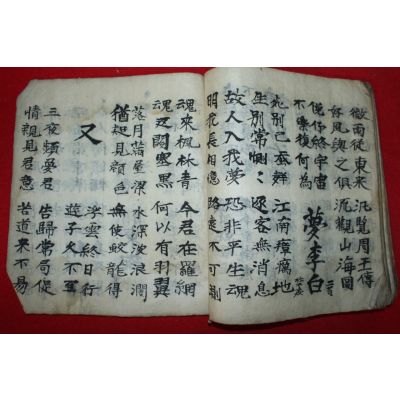 微雨從東來 汎覽周王傳
好風與之俱 流觀山海圖
俛仰終宇宙
不樂復何如
夢李白 二首
死別已吞聲 江南瘴癘地
生別常惻〻 逐客無消息
故人入我夢 恐非平生魂
明我長相憶 路遠不可測
魂來楓林青 今君在羅網
魂返關塞黑 何以有羽翼
落月滿屋梁 水深波浪濶
猶疑見顔色 無使蛟龍得
又
浮雲終日行
遊子久不至
三夜頻夢君 告歸常局促
情親見君意 苦道來不易